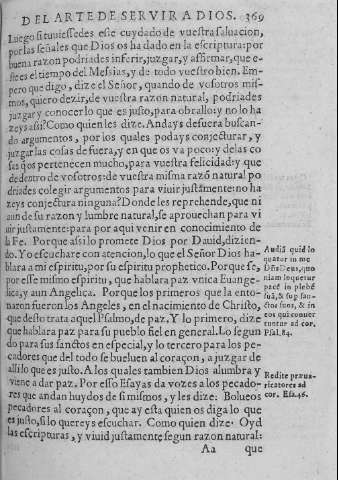 DEL ARTE DE SERVIR A DIOS. 369
Luego si tuuiessedes este cuydado de vuestra saluacion,
por las señales que Dios os ha dado en la escriptura: por
buena razon podriades inferir, juzgar, y affirmar, que e-
ste es el tiempo del Messias, y de todo vuestro bien. Em-
pero que digo, dize el Señor, quando de vosotros mis-
mos, quiero dezir, de vuestra razon natural, podriades
juzgar y conocer lo que es justo, para obrallo: y no lo ha
zeys assi? Como quien les dize. Andays defuera buscan-
do argumentos, por los quales podays conjecturar, y
juzgar las cosas de fuera, y en que os va poco: y de las co
sas q̃ os pertenecen mucho, para vuestra felicidad: y que
de dentro de vosotros: de vuestra misma razõ natural po
driades colegir argumentos para viuir justãmente: no ha
zeys conjectura ninguna? Donde les reprehende, que ni
aun de su razon y lumbre natural, se aprouechan para vi
uir justamente: para por aqui venir en conocimiento de
la Fe. Porque assi lo promete Dios por Dauid, dizien-
do. Yo escuchare con atencion, lo que el Señor Dios ha-
blara a mi espiritu, por su espiritu prophetico. Porque se,
por esse mismo espiritu, que hablara paz vnica Euange-
lica; y aun Angelica. Porque los primeros que la ento-
naron fueron los Angeles, en el nacimiento de Christo,
que desto trata aquel Psalmo, de paz. Y lo primero, dize
que hablara paz para su pueblo fiel en general. Lo segun
do para sus sanctos en especial, y lo tercero para los pe-
cadores que del todo se bueluen al coraçon, a juzgar de
alli lo que es justo. A los quales tambien Dios alumbra y
viene a dar paz. Por esso Esayas da vozes a los pecado-
res que andan huydos de si mismos, y les dize: Bolueos
pecadores al coraçon, que ay esta quien os diga lo que
es justo, si lo quereys escuchar. Como quien dize. Oyd
las escripturas, y viuid justamente segun razon natural:
Aa que
Audiã quid lo
quatur in me
Dñs Deus, quo
niam loquetur
pacẽ in plebẽ
suã, & sup san-
ctos suos, & in
eos qui conuer
tuntur ad cor.
Psal. 84.
Redite præua-
ricatores ad
cor. Esa. 46.